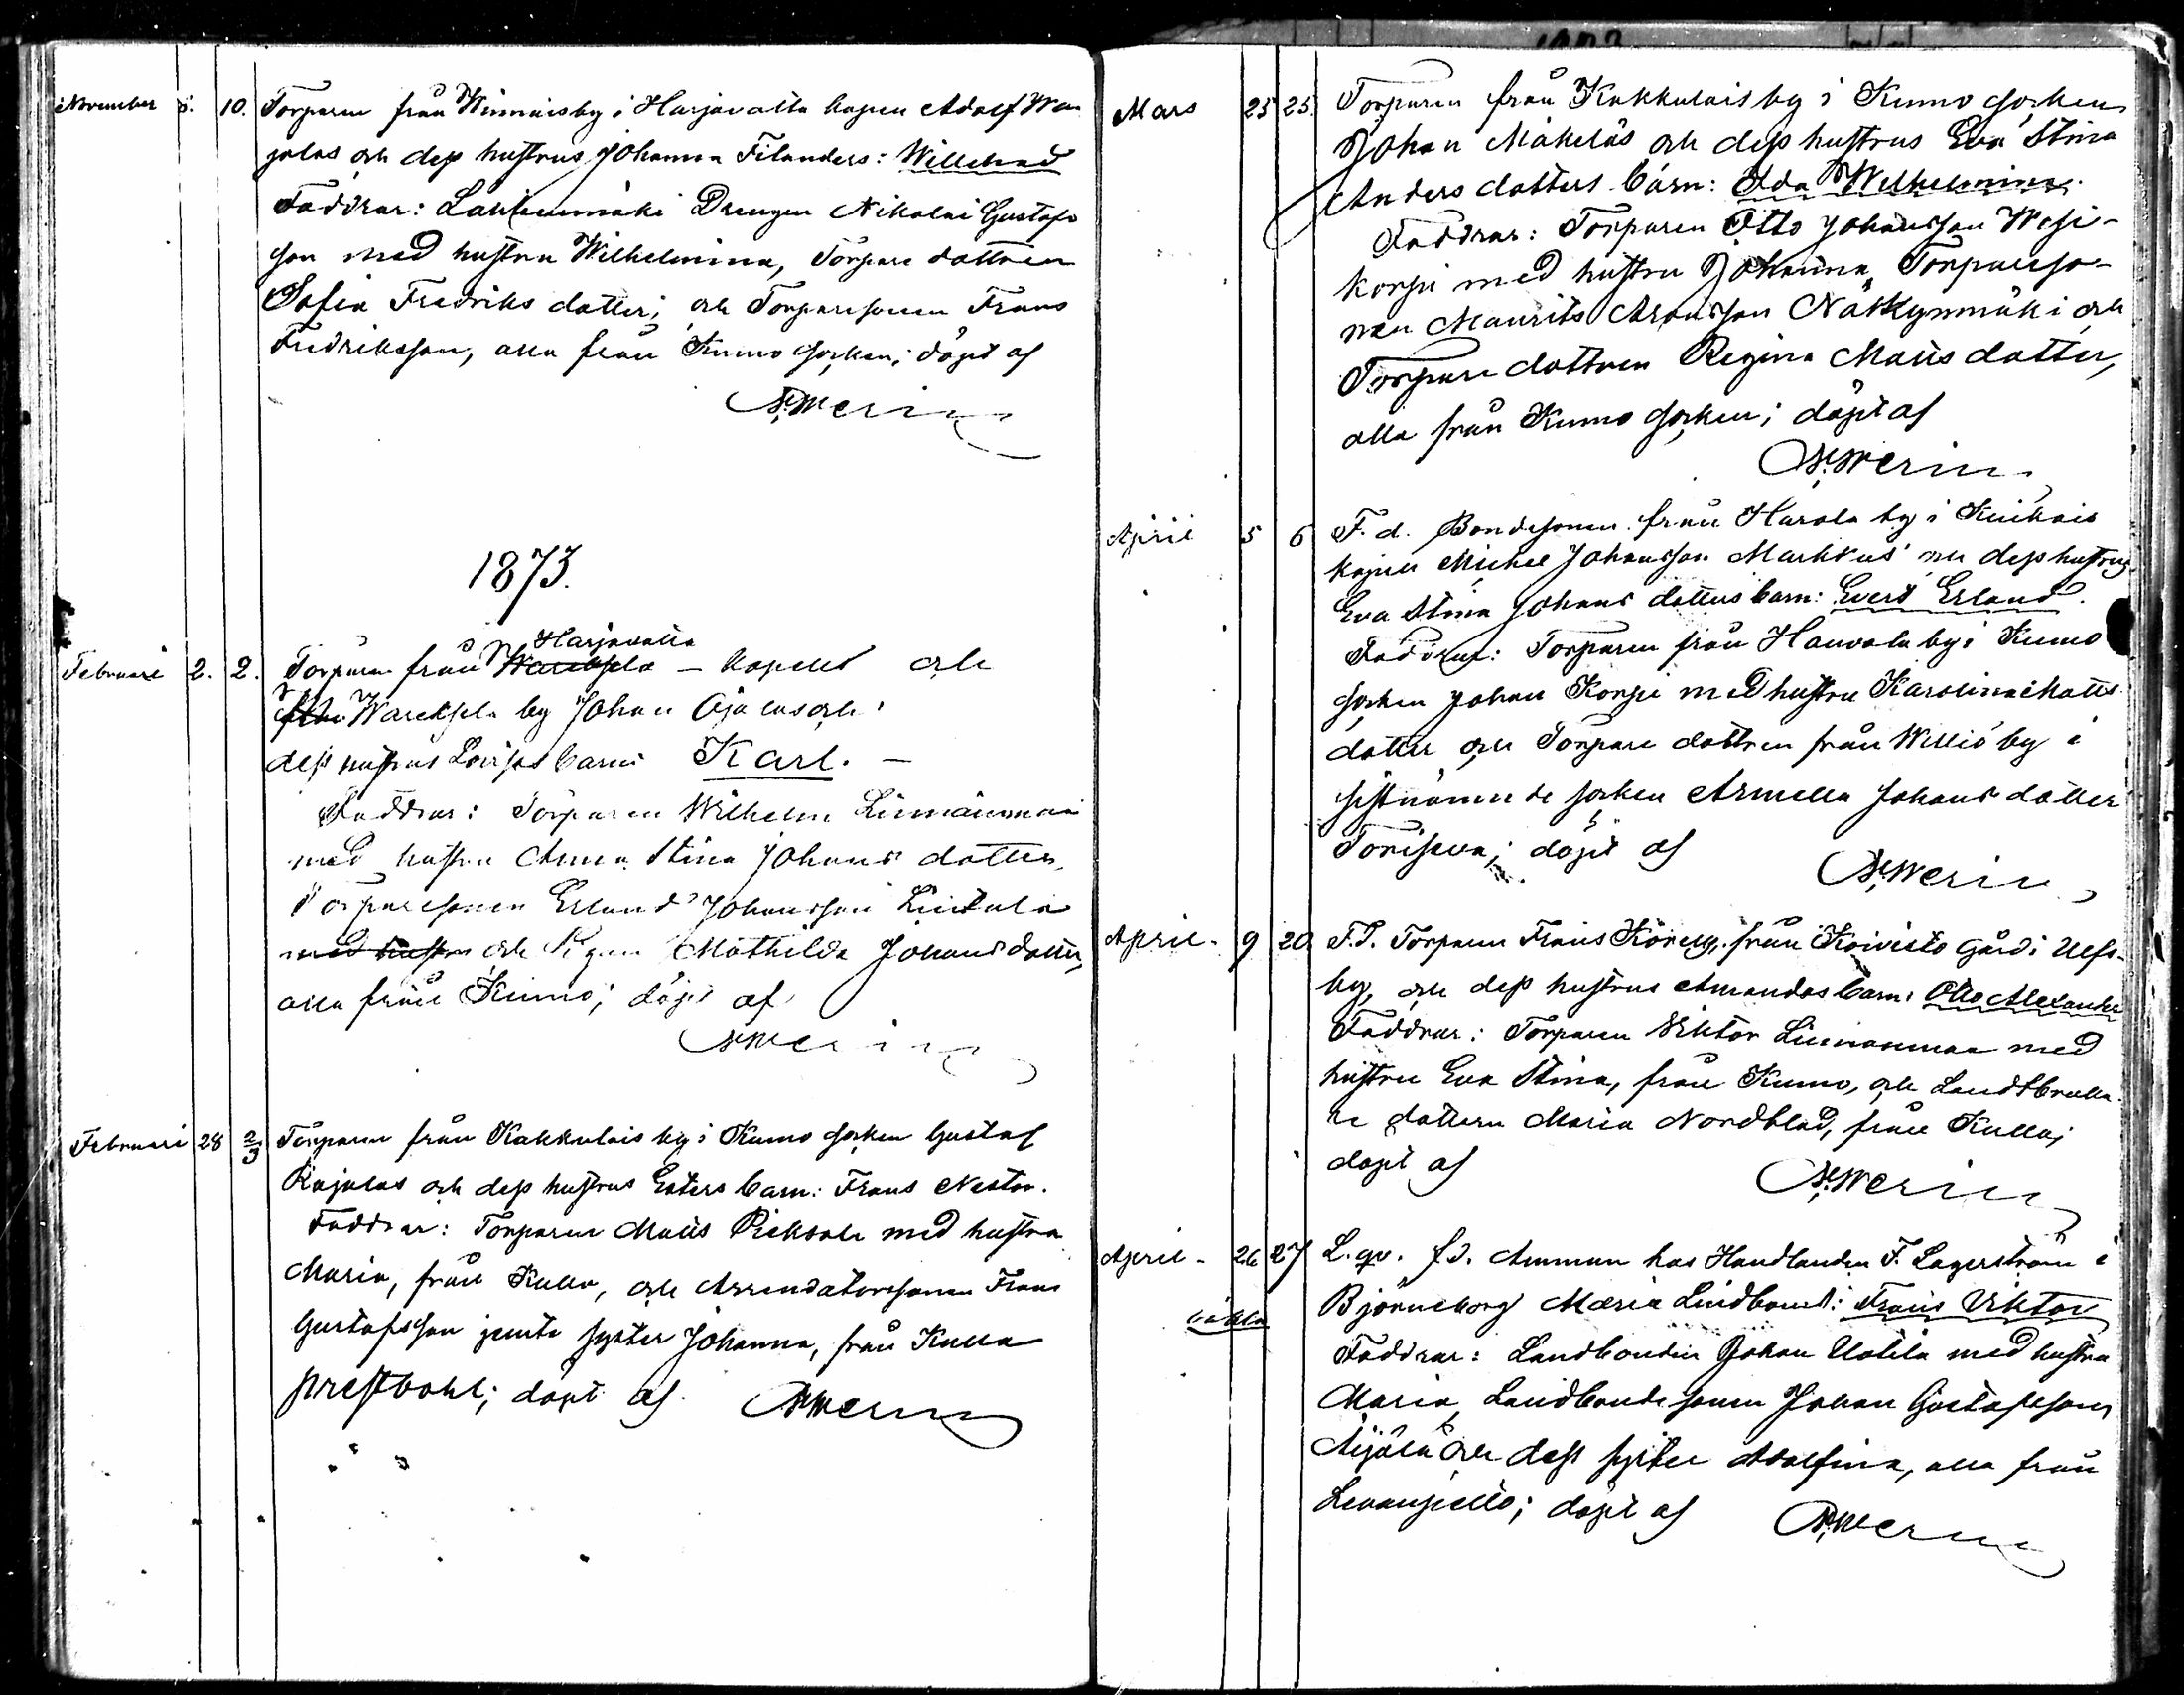 November 5. 10. Torparen från Winnais by i Harjavalta kapell Adolf Wa
jalas och dess hustrus Johanna Filanders: Willehad
Faddrar: Lautenmäki Drengen Nikolai Gustafs
son med hustru Wilhelmina, Torpare dottren
Sofia Fredriks dotter; och Torparesonen Frans
Fredriksson, alla från Kumo socken; döpt af
1873.
Harjavalta
Februari 2. 2. Torparen från Wareksela - kapell och
från Wareksela by Johan Ojalas och
dess hustrus Lovisas barn Karl. -
Faddrar: Torparen Wilhelm Linnainmaa
med hustru Anna Stina Johans dotter,
Torparesonen Erland Johansson Lintula
med hustru och Pigan Mathilda Johansdotter,
alla från Kumo; döpt af
Februari 28 2/3 Torparen från Kakkulais by i Kumo socken Gustaf
Rajalas och dess hustrus Esters barn: Frans Nestor.
Faddrar: Torparen Matts Pieksala med hustru
Maria, från Kulla, och Arrendatorssonen Frans
Gustafsson jemte syster Johanna, från Kulla
prestbohl; döpt af
Mars 25 25. Torparen från Kakkulais by i Kumo socken
Johan Mäkeläs och dess hustrus Eva Stina
Anders dotters barn: Ida Wilhelmina.
Faddrar: Torparen Otto Johansson Wesi-
korpi med hustru Johanna, Torpareso-
nen Maurits Aronsson Nätkynmäki och
Torpare dottren Regina Matts dotter,
alla från Kumo socken; döpt af
April 5 6 F. d. Bondesonen från Harola by i Kiukais
kapell Michel Johansson Markkus' och dess hustrus
Eva Stina Johans dotters barn: Evert Erland.
Faddrar: Torparen från Hauvola by i Kumo
socken Johan Korpi med hustru Karolina Matts
dotter och Torpare dottren från Willio by i
sistnämnde socken Armella Johans dotter
Toriseva; döpt af
April - 9 20. F.d. Torparen Frans Köreng, från Koivisto gård i Ulfs-
by, och dess hustrus Amandas barn: Otto Alexander
Faddrar: Torparen Viktor Linnanmaa med
hustru Eva Stina, från Kumo, och Landtbruka-
re dottern Maria Nordblad, från Kulla;
döpt af
April - 26 27 L. qv. f.d. Amman hos Handlanden F. Lagerström i
Björneborg Maria Lindbom: Frans Viktor
oäkta
Faddrar: Landbonden Johan Uotila med hustru
Maria, Landbondesonen Johan Gustafsson
Äijälä och dess syster Adolfina, alla från
Levanpelto; döpt af